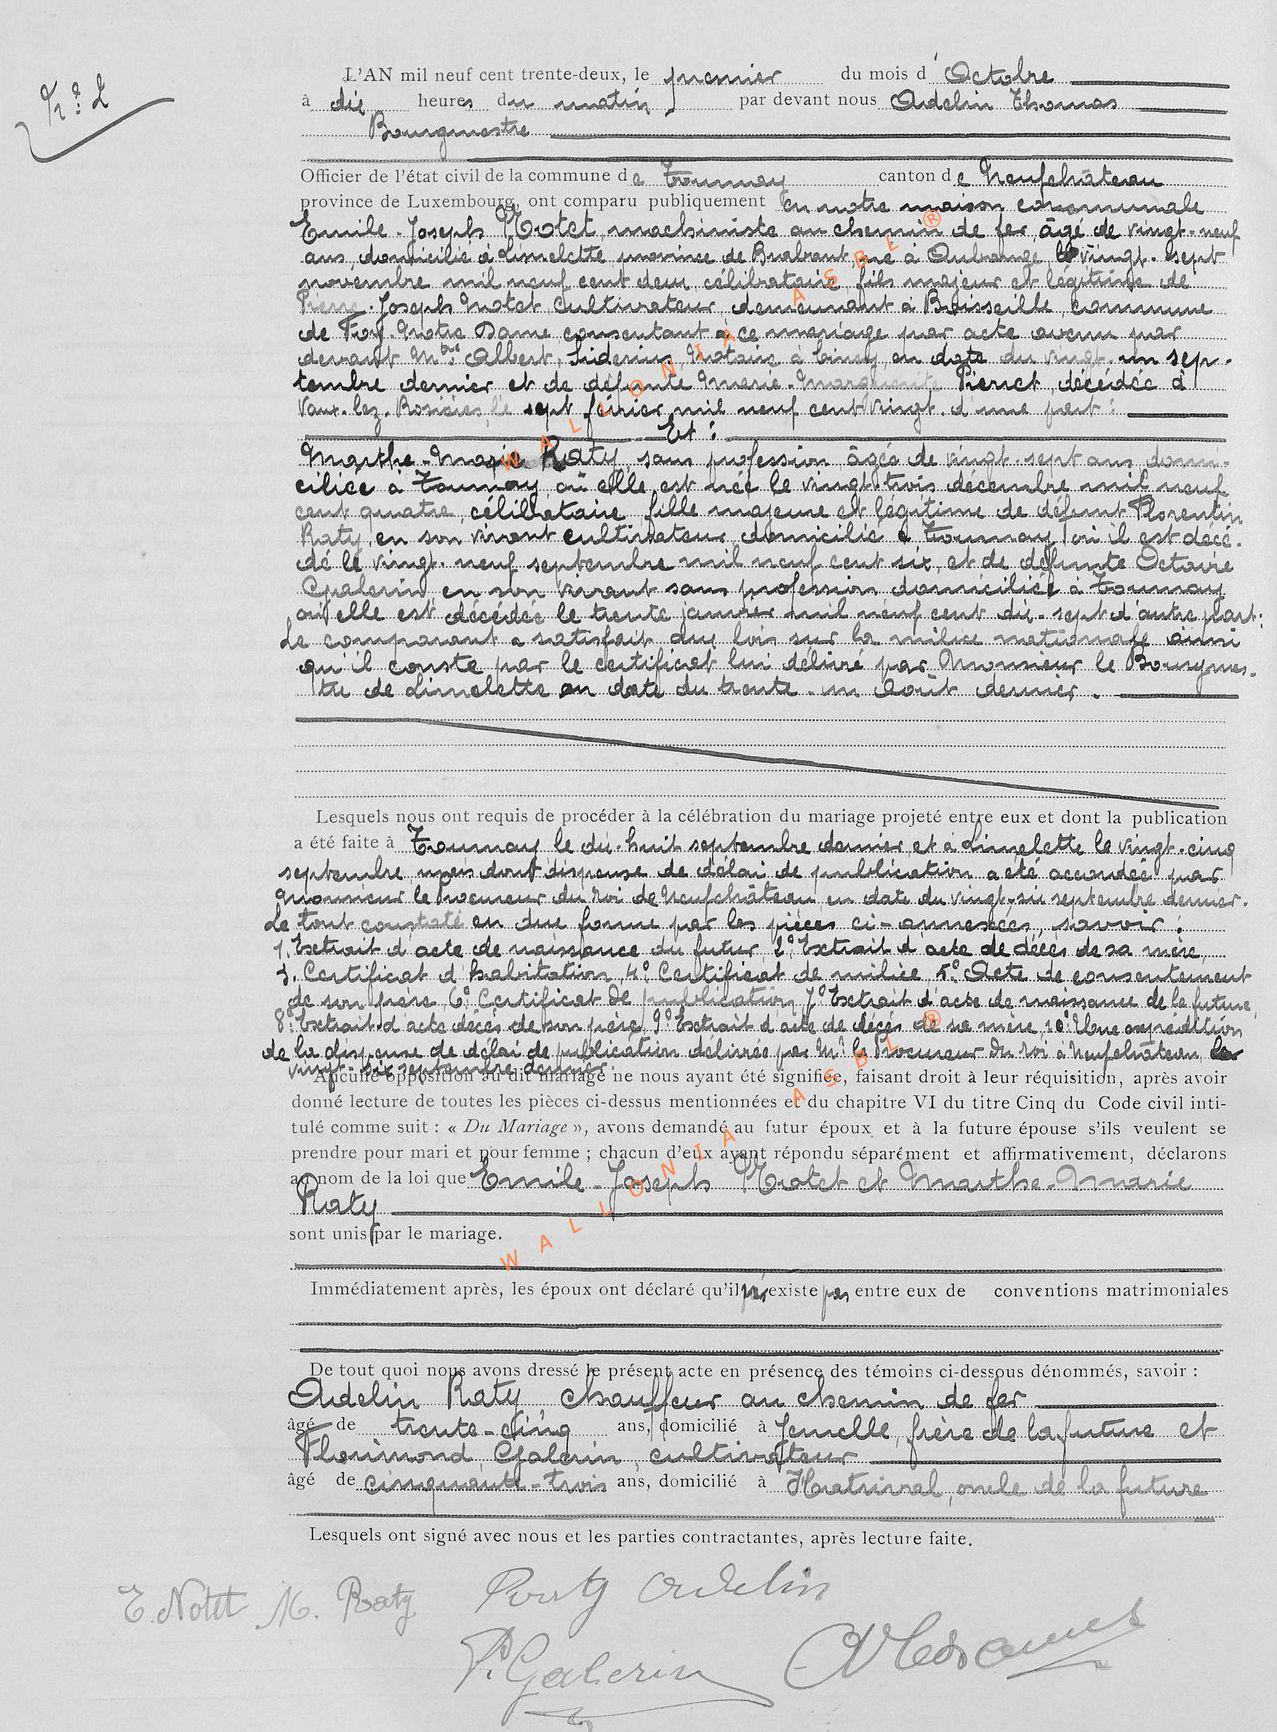 N° 2
L'AN mil neuf cent trente-deux, le premier du mois d'Octobre
à dix heures du matin par devant nous Adelin Thomas
Bourgmestre
Officier de l'état civil de la commune de Tournay canton de Neufchâteau
province de Luxembourg, ont comparu publiquement en notre maison communale
Emile-Joseph Notet, machiniste au chemin de fer, âgé de vingt-neuf
ans, domicilié à Limelette province de Brabant, né à Aubange le vingt-sept
novembre mil neuf cent deux, célibataire, fils majeur et légitime de
Pierre-Joseph Notet cultivateur, demeurant à Boisseille, commune
de Foy-Notre Dame consentant à ce mariage par acte avenu par
devant Albert notaire à Ciney, en date du vingt-un sep-
tembre dernier et de défunte Marie-Marguerite Pierret, décédée à
Vaux-lez-Rosières, le sept février mil neuf cent vingt d'une part:
Et:
Marthe-Marie Raty, sans profession âgée de vingt-sept ans, domi-
ciliée à Tournay où elle est née le vingt-trois décembre mil neuf
cent quatre, célibataire, fille majeure et légitime de défunt Florentin
Raty, en son vivant cultivateur, domicilié à Tournay, où il est décé-
dé le vingt-neuf septembre mil neuf cent six, et de défunte Octavie
Galerin en son vivant sans profession domiciliée à Tournay
où elle est décédée le trente janvier mil neuf cent dix-sept d'autre part:
Le comparant a satisfait aux lois sur la milice nationale ainsi
qu'il conste par le certificat lui délivré par Monsieur le Bourgmes-
tre de Limelette en date du trente-un Août dernier.
Lesquels nous ont requis de procéder à la célébration du mariage projeté entre eux et dont la publication
a été faite à Tournay le dix-huit septembre dernier et à Limelette le vingt-cinq
septembre mois dont dispense de délai de publication a été accordée par
Monsieur le Procureur du Roi de Neufchâteau en date du vingt-six septembre dernier.
Le tout constaté en due forme par les pièces ci-annexées, savoir:
1. Extrait d'acte de naissance du futur, 2° Extrait d'acte de décès de sa mère,
3. Certificat d'habitation, 4° Certificat de milice, 5° Acte de consentement
de son père, 6° Certificat de publication, 7° Extrait d'acte de naissance de la future,
8° Extrait d'acte décès de son père, 9° Extrait d'acte de décès de sa mère 10° Une expédition
de la dispense de délai de publication délivrée par Mr le Procureur du Roi à Neufchâteau, le
vingt-six septembre dernier.
Aucune opposition au dit mariage ne nous ayant été signifiée, faisant droit à leur réquisition, après avoir
donné lecture de toutes les pièces ci-dessus mentionnées et du chapitre VI du titre Cinq du Code civil inti-
tulé comme suit : « Du Mariage », avons demandé au futur époux et à la future épouse s'ils veulent se
prendre pour mari et pour femme ; chacun d'eux ayant répondu séparément et affirmativement, déclarons
au nom de la loi que Emile-Joseph Notet et Marthe-Marie
Raty
sont unis par le mariage.
Immédiatement après, les époux ont déclaré qu'il n'existe pas entre eux de conventions matrimoniales
De tout quoi nous avons dressé le présent acte en présence des témoins ci-dessous dénommés, savoir :
Adelin Raty, chauffeur au chemin de fer
âgé de trente-cinq ans, domicilié à Jemelle, frère de la future et
Florimond Galerin, cultivateur
âgé de cinquante-trois ans, domicilié à Hatrival, oncle de la future
Lesquels ont signé avec nous et les parties contractantes, après lecture faite.
E. Notet M. Raty Raty Adelin
F. Galerin A Thomas
WALLONIA ASBL ®
WALLONIA ASBL ®